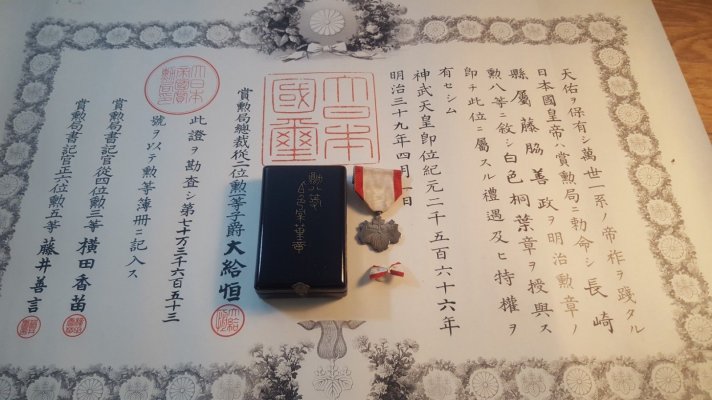 天佑ヲ保有シ萬世一系ノ帝祚ヲ踐タル
日本國皇帝ハ賞勲局ニ勅命シ長崎
縣屬藤脇善政ヲ明治勲章ノ
勲八等ニ敘シ白色桐葉章ヲ授與ス
即チ此位ニ屬スル禮遇及ヒ特權ヲ
有セシム
神武天皇即位紀元二千五百六十六年
明治三十九年四月一日
大日本國璽
賞勲局總裁從二位勲一等子爵大給恒
此證ヲ勘査シ第七十万三千六百五十三
號ヲ以テ勲等簿冊ニ記入ス
賞勲局書記官從四位勲三等橫田香苗
賞勲局書記官正六位勲五等藤井善言
勲八等